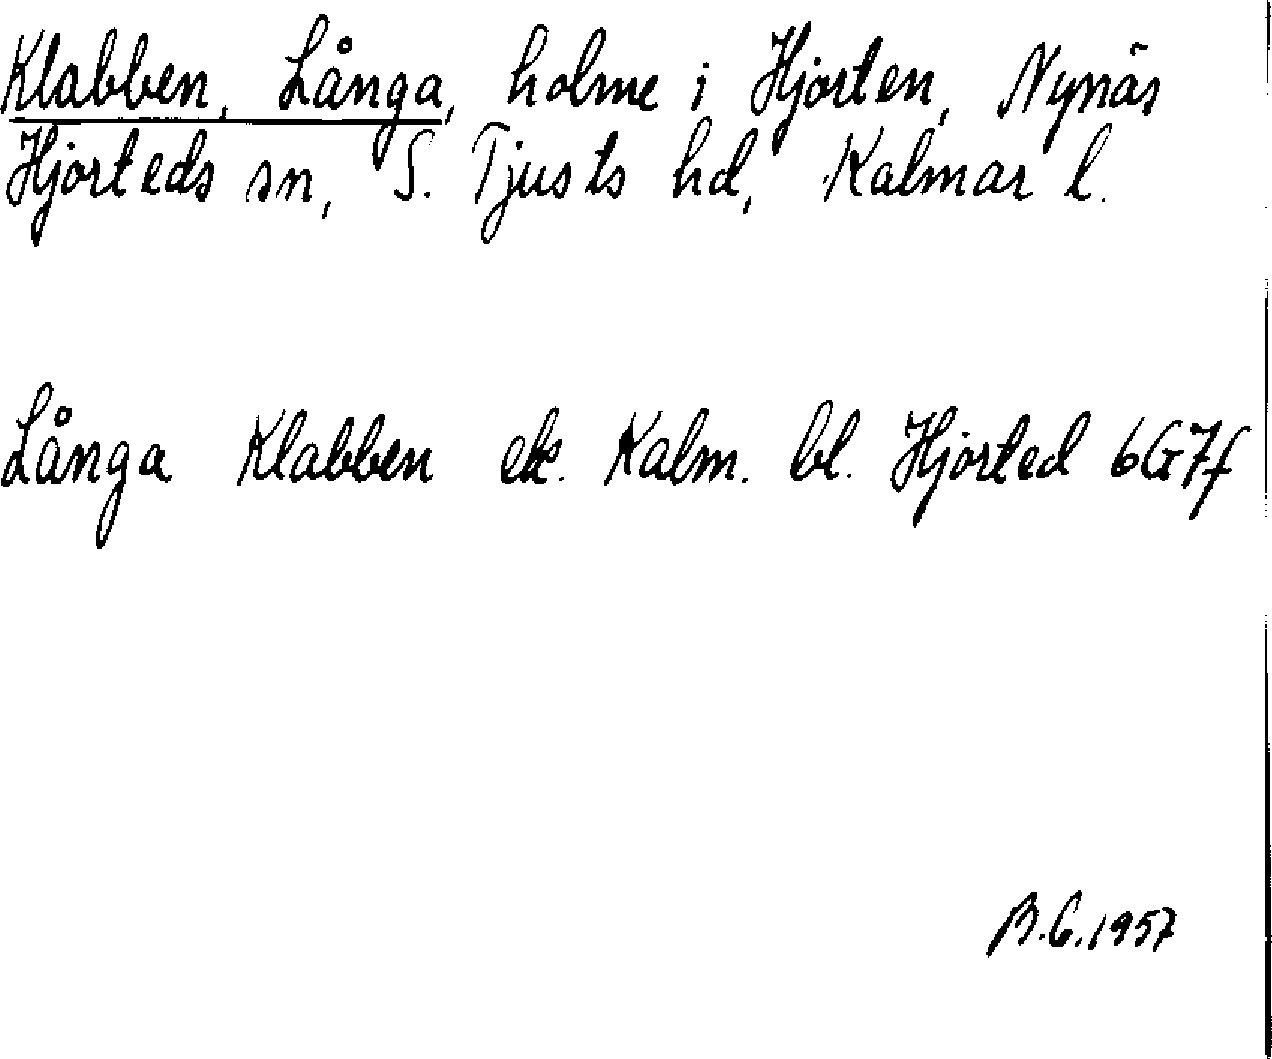 Klabben, Långa, holme i Hjorten, Nynäs
Hjorteds sn, S. Tjusts hd, Kalmar l.
Långa Klabben ek. Kalm. bl. Hjorted 6G7f
B.G.1957